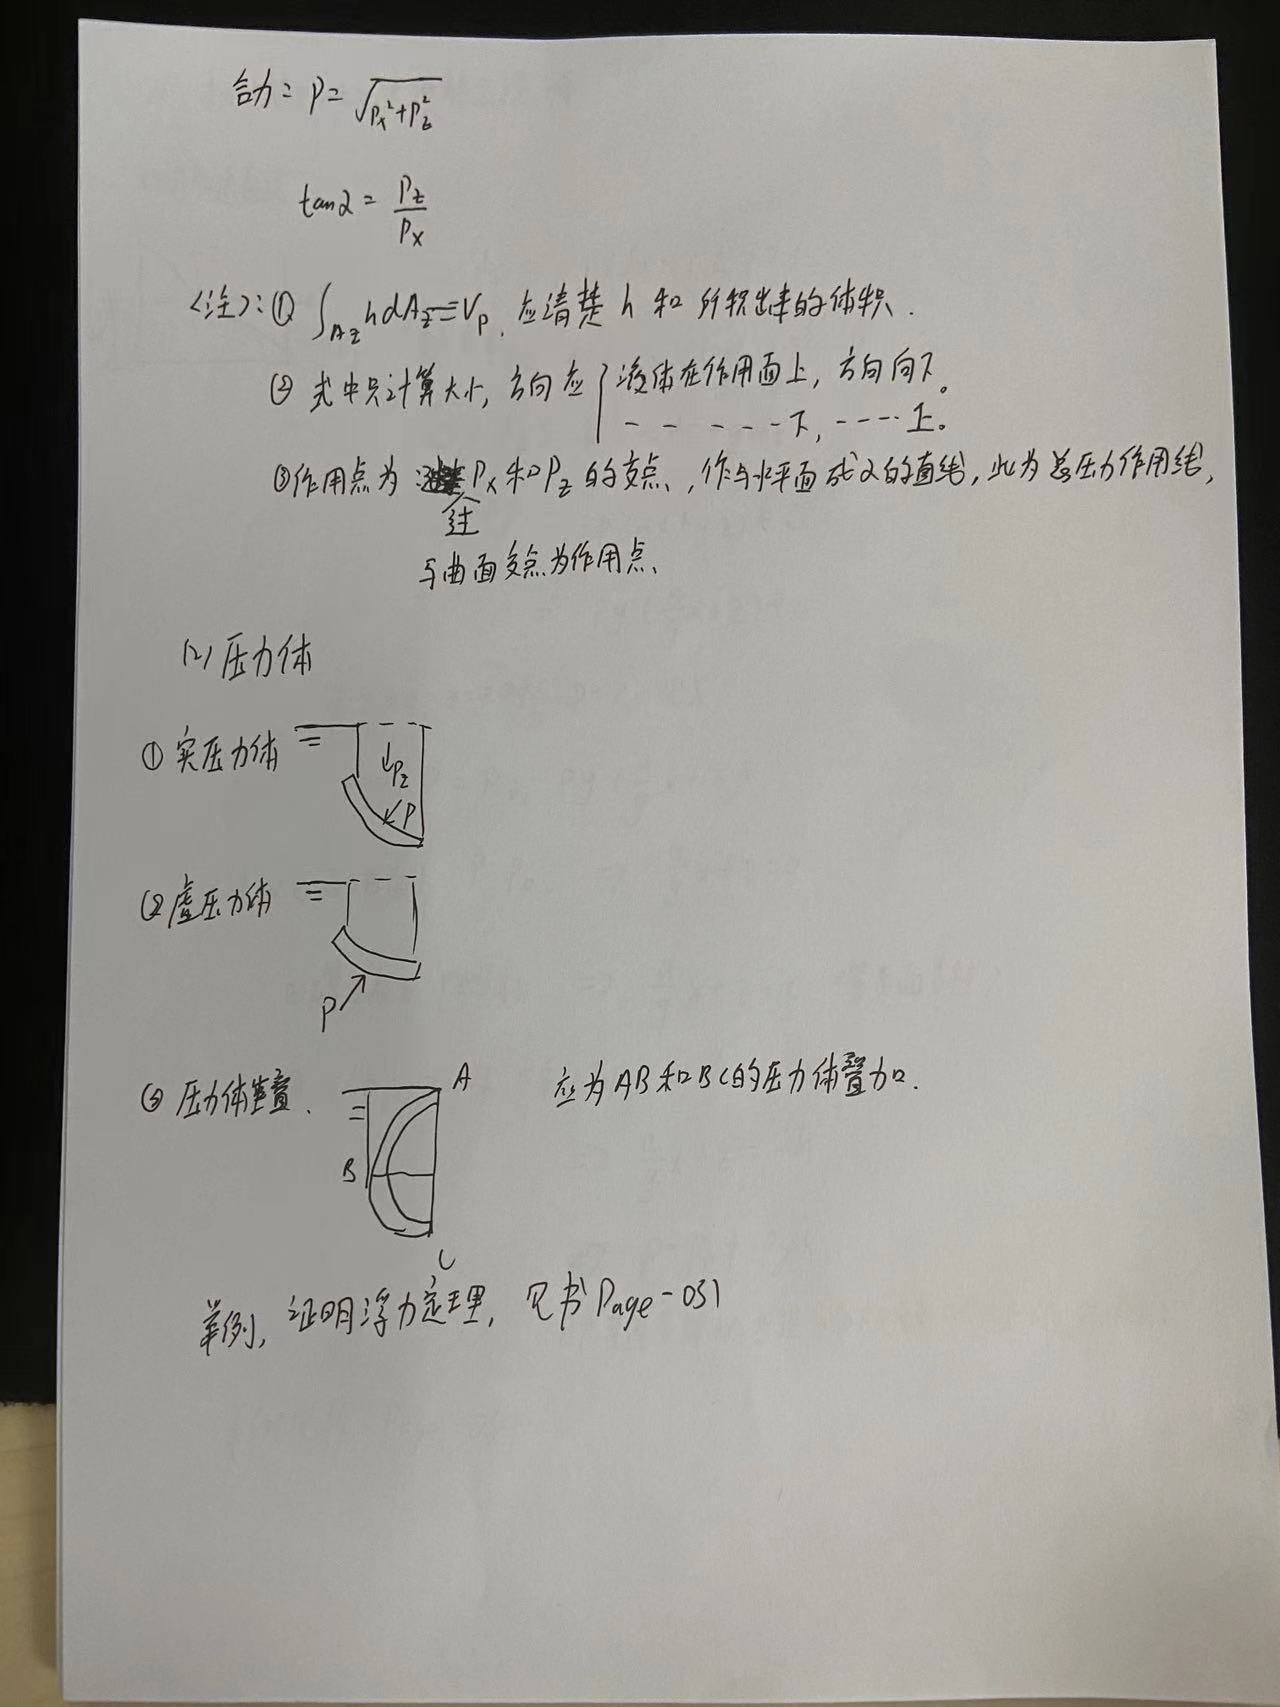 合力 = P = √(Px² + Pz²)
tanα = Pz / Px
<注>: ① ∫Az h dAz = Vp, 应清楚 h 和 所积出来的体积.
② 式中只计算大小, 方向应 { 液体在作用面上, 方向向下。
- - - - - 下, - - - - 上。
③作用点为 过 Px 和 Pz 的交点, 作与水平面成α的直线, 此为总压力作用线,
与曲面交点为作用点、
(2) 压力体
① 实压力体
Pz
P
② 虚压力体
P
③ 压力体叠.
A
B
C
应为AB和BC的压力体叠加.
举例, 证明浮力定理, 见书Page-031